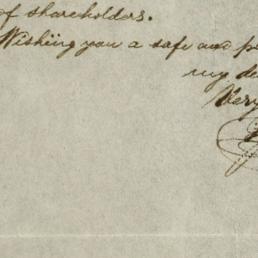 of shareholders.
Wishing you a safe and
my
Very